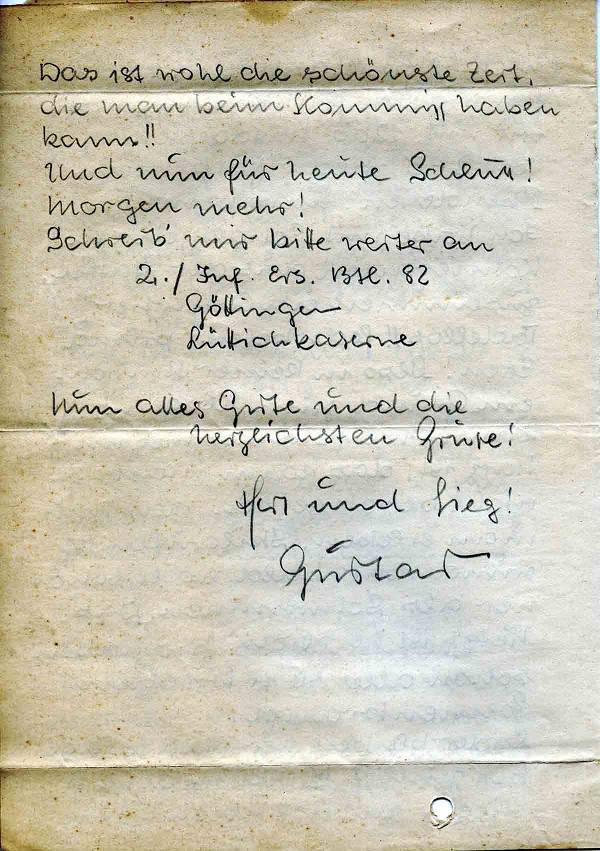 Das ist wohl die schönste Zeit,
die man beim Kommiss haben
kann!!
Und nun für heute Schluss!
Morgen mehr!
Schreib' mir bitte weiter an
2./ Inf. Ers. Btl. 82
Göttingen
Lüttichkaserne
Nun alles Gute und die
herzlichsten Grüsse!
Heil und Sieg!
Gustav